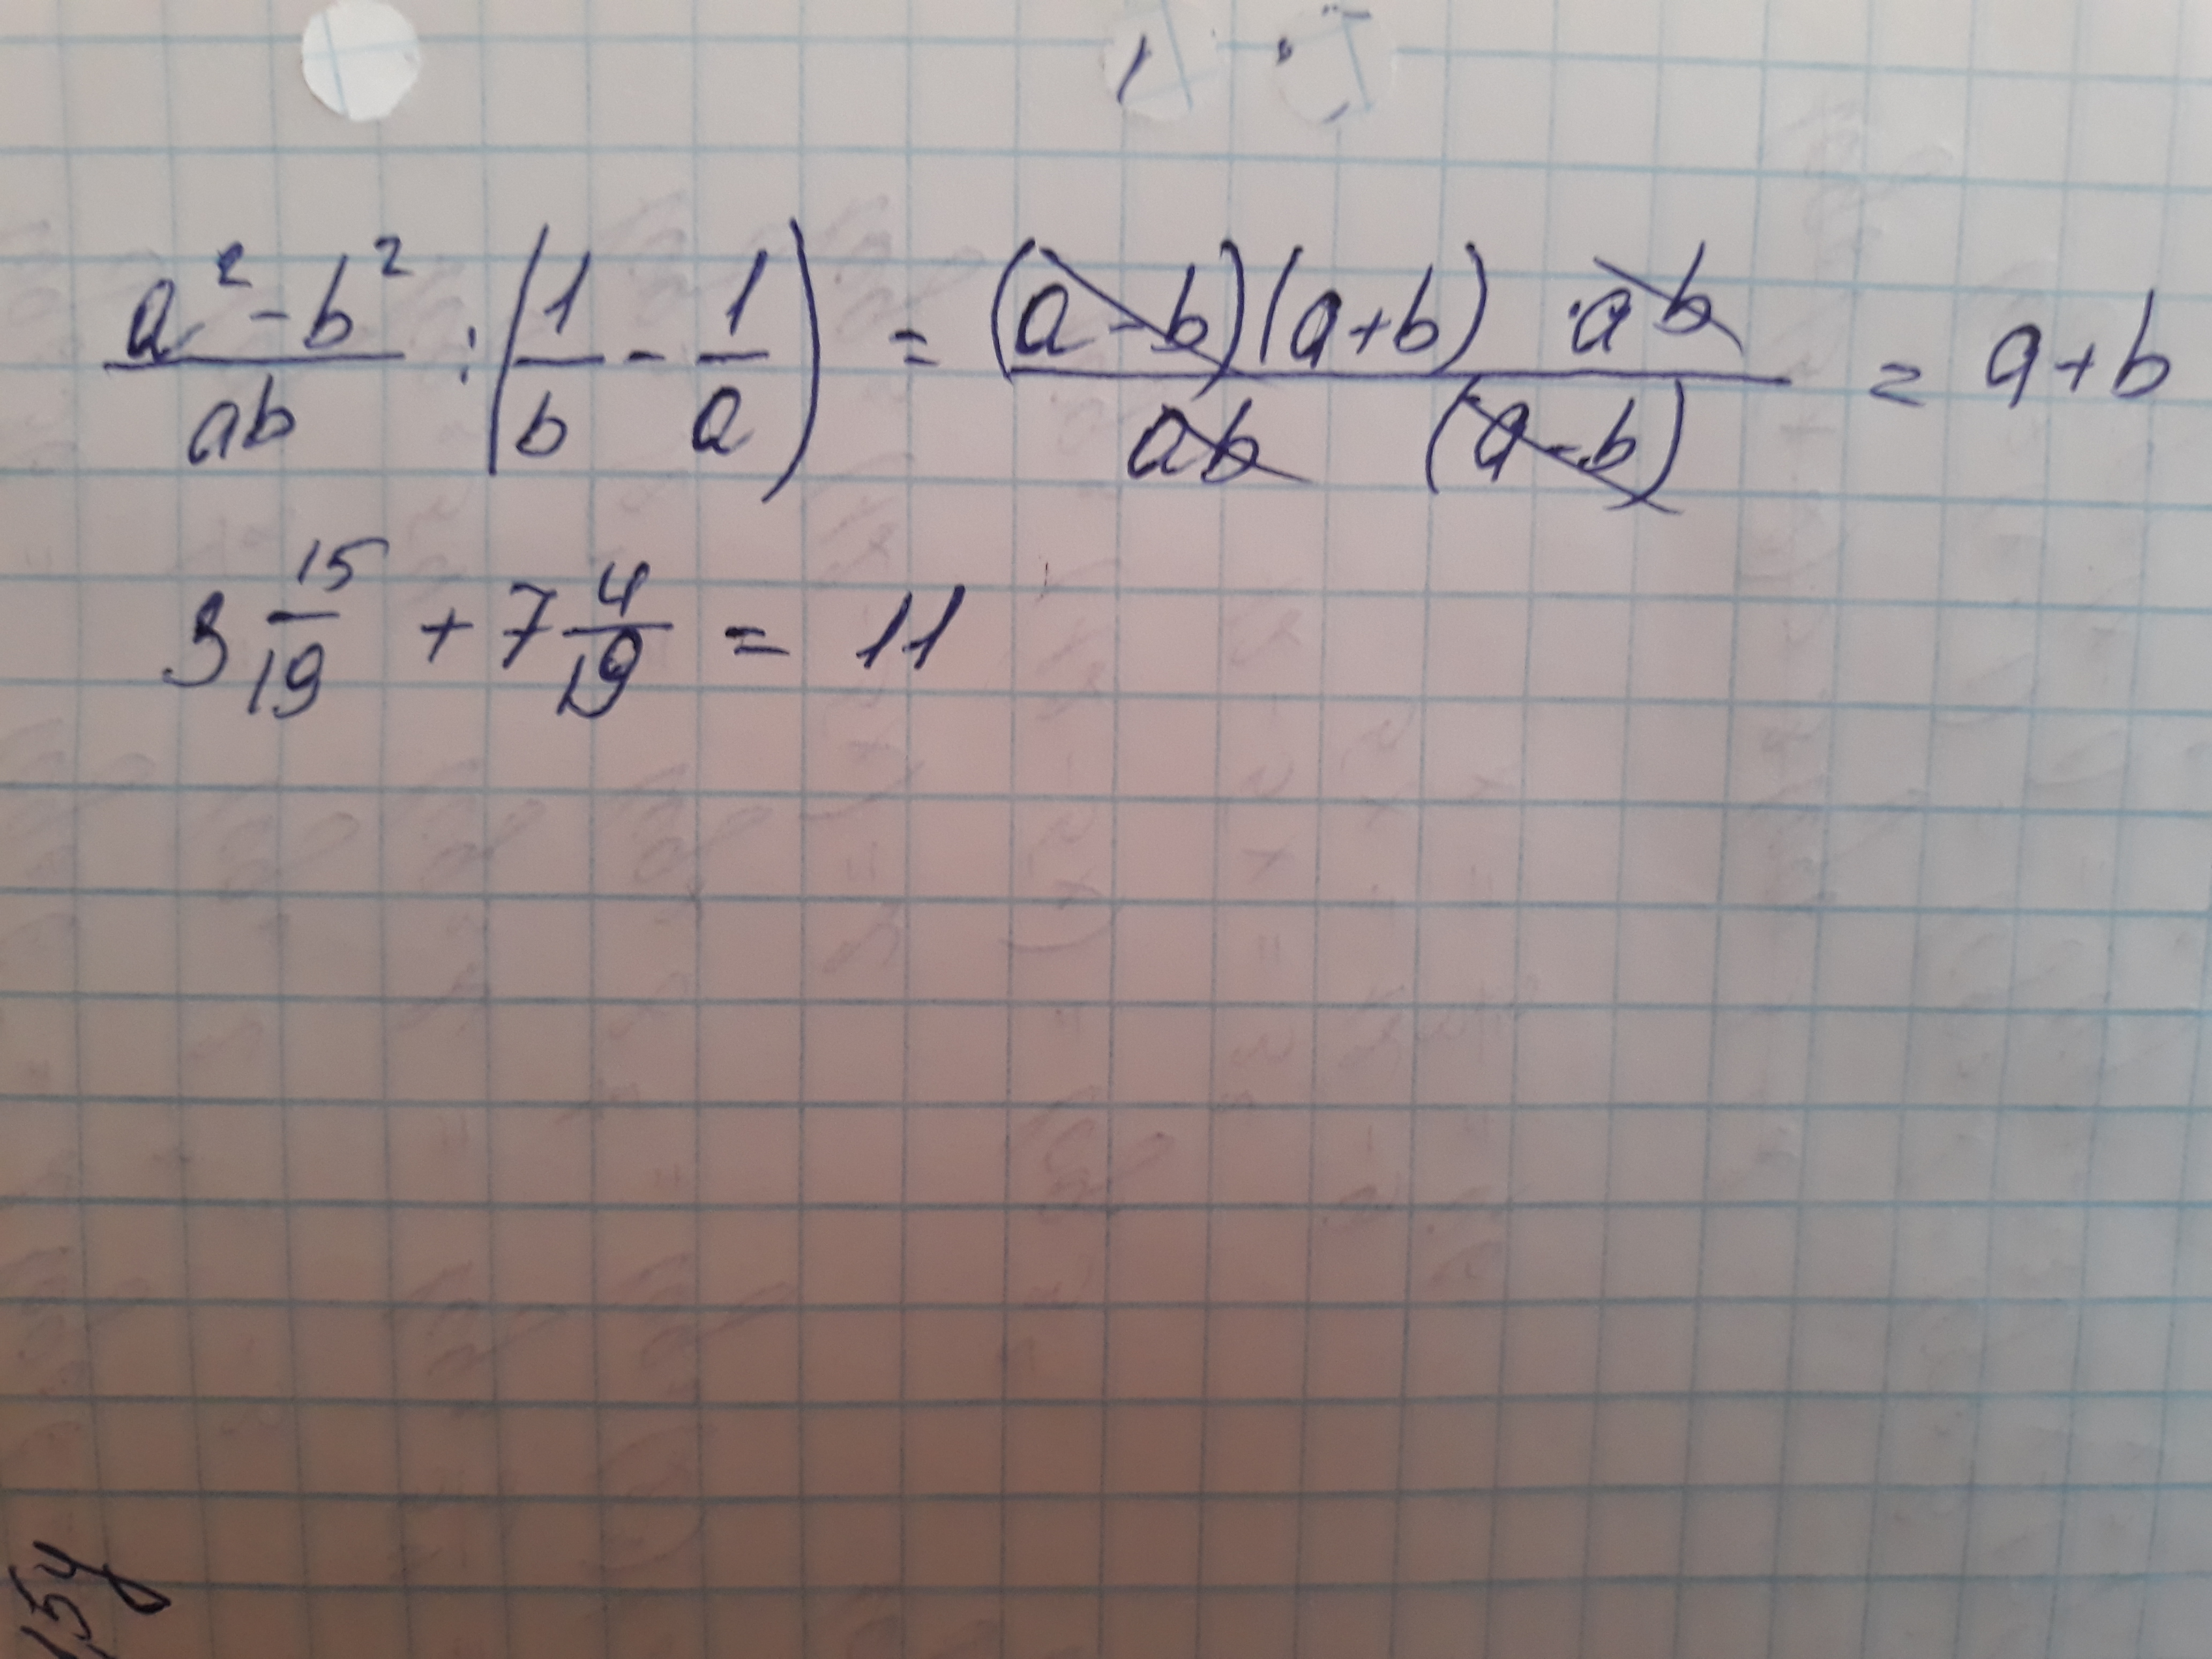 (a² - b²)/(ab) : (1/b - 1/a) = ((a-b)(a+b) · ab)/(ab (a-b)) = a+b
3 15/19 + 7 4/19 = 11
,5y